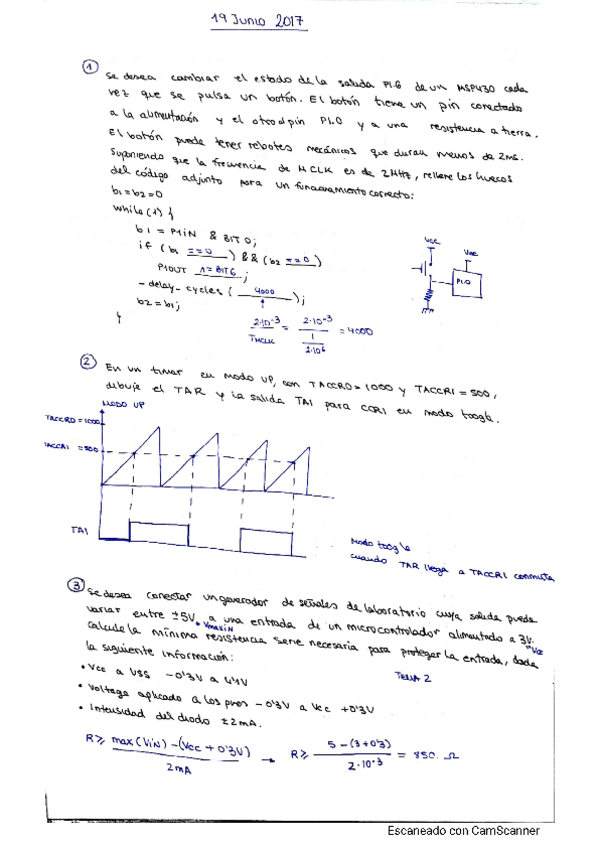 19 Junio 2017
1
Se desea cambiar el estado de la salida P1.6 de un MSP430 cada
vez que se pulsa un botón. El botón tiene un pin conectado
a la alimentación y el otro al pin P1.0 y a una resistencia a tierra.
El botón puede tener rebotes mecánicos que duran menos de 2ms.
Suponiendo que la frecuencia de MCLK es de 2MHz, rellene los huecos
del código adjunto para un funcionamiento correcto:
b1=b2=0
while(1){
b1 = P1IN & BIT0;
if (b1 ==0) && (b2 ==0)
P1OUT ^=BIT6;
_delay_cycles (4000);
b2=b1;
}
2·10^-3 / TMCLK = 2·10^-3 / (1 / 2·10^6) = 4000
Vcc
Vcc
P1.0
2
En un timer en modo UP, con TACCR0=1000 y TACCR1=500,
dibuje el TAR y la salida TA1 para CCR1 en modo toogle.
MODO UP
TACCR0=1000
TACCR1=500
TA1
Modo toogle
cuando TAR llega a TACCR1 conmuta
3
Se desea conectar un generador de señales de laboratorio cuya salida puede
variar entre ±5V, a una entrada de un microcontrolador alimentado a 3V.
VmaxIN
Vcc
calcule la mínima resistencia serie necesaria para proteger la entrada, dada
la siguiente información:
TEMA 2
• Vcc a VSS -0'3V a 4'1V
• Voltage aplicado a los pines -0'3V a Vcc +0'3V
• Intensidad del diodo ±2mA.
R≥ max(VIN)-(Vcc+0'3V) / 2mA → R≥ 5-(3+0'3) / 2·10^-3 = 850 Ω
Escaneado con CamScanner